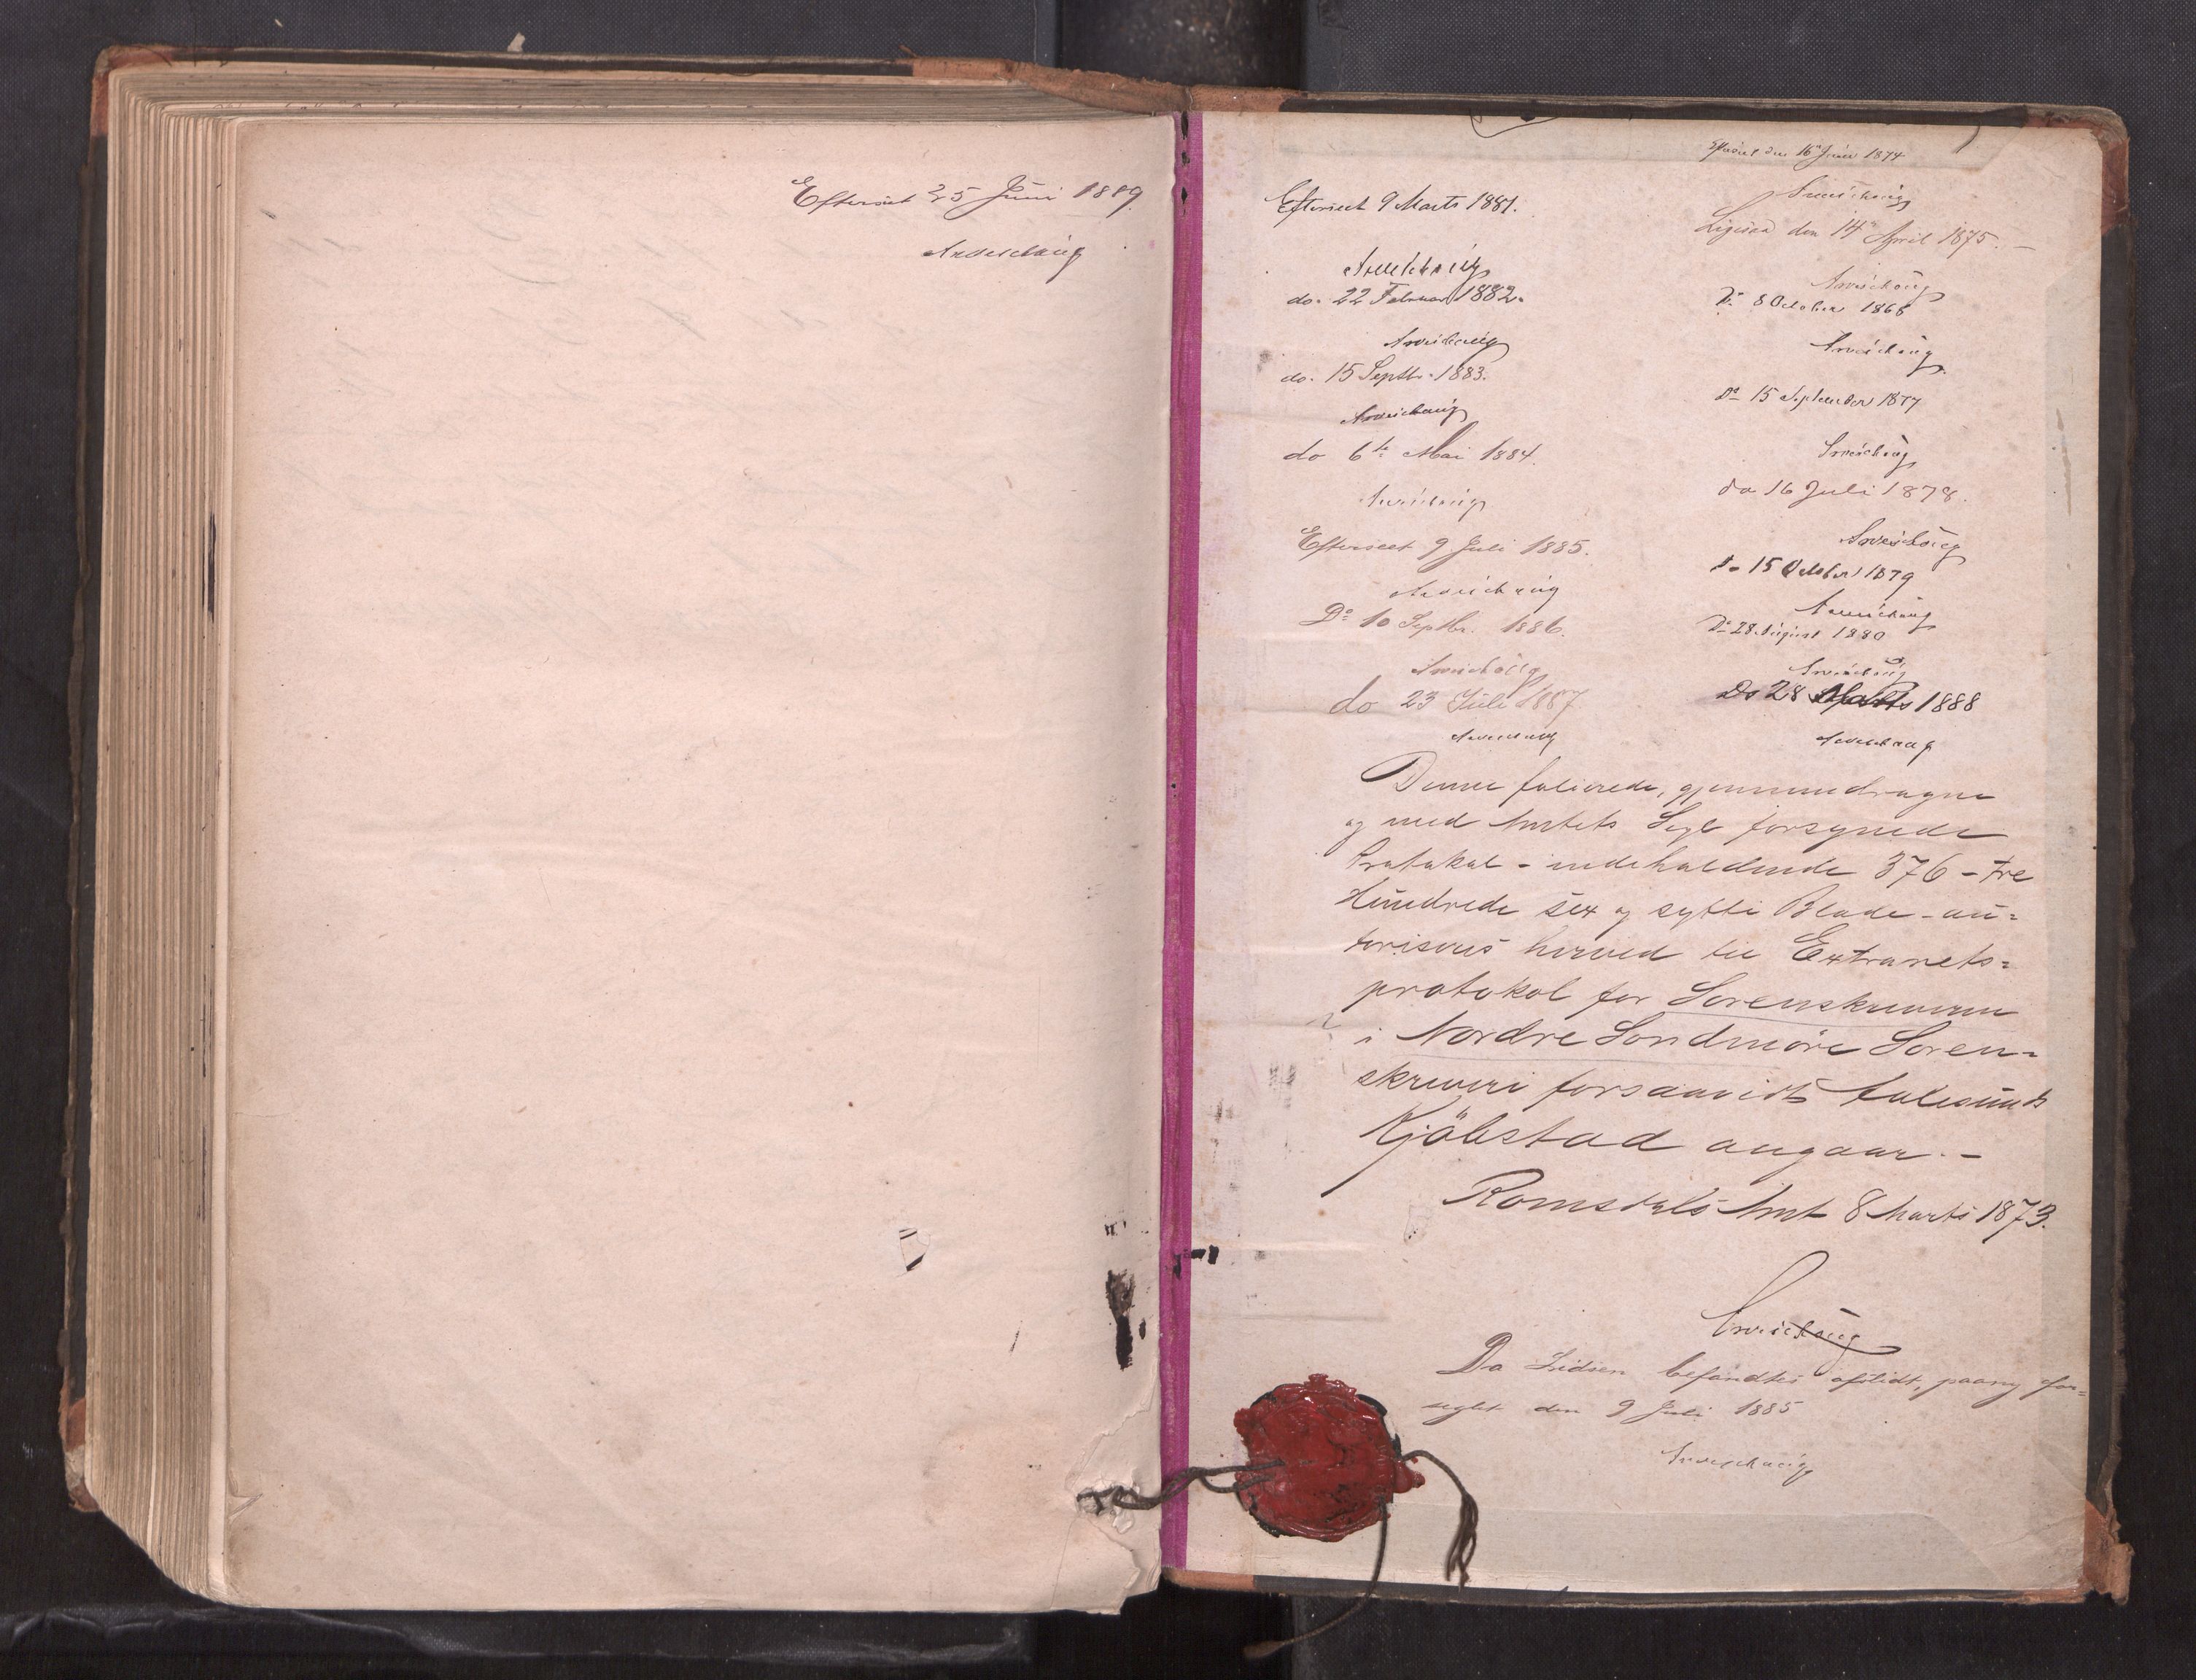 Efterseet 25 Juni 1889.
Arveschoug
Efterseet 9 Marts 1881.
Arveschoug
do. 22 Februar 1882.
Arveschoug
do. 15 Septbr. 1883.
Arveschoug
do 6te Mai 1884.
Arveschoug
Efterseet 9 Juli 1885.
Arveschoug
Do 10 Septbr. 1886.
Arveschoug
do 23 Juli 1887.
Arveschoug
den 16de Juni 1874
Arveschoug
Ligesaa den 14de April 1875.
Arveschoug
Do 8 October 1868
Arveschoug
Do 15 September 1877
Arveschoug
do 16 Juli 1878.
Arveschoug
Do 15 October 1879
Arveschoug
Do 28 August 1880
Arveschoug
Do 28 1888
Arveschoug
Denne folierede, gjennemdragne
og med Amtets Segl forsynede
Protokol - indeholdende 376 - tre
Hundrede sex og sytti Blade - au=
toriseres herved til Extrarets=
protokol for Sorenskriveren
i Nordre Søndmøre Soren=
skriveri forsaavidt Aalesunds
Kjöbstad angaar. -
Romsdals Amt 8 Marts 1873.
Arveschoug
Da Lidsen befandtes afslidt, paany for=
seglet den 9 Juli 1885
Arveschoug